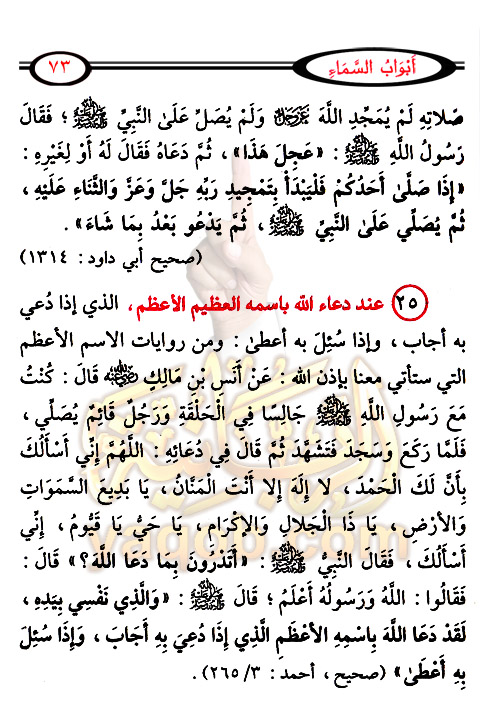 أَبْوَابُ السَّمَاءِ
٧٣
صَلاتِهِ لَمْ يُمَجِّدِ اللَّهَ عَزَّ وَجَلَّ وَلَمْ يُصَلِّ عَلَىٰ النَّبِيِّ ﷺ ؛ فَقَالَ
رَسُولُ اللَّهِ ﷺ : «عَجِلَ هَذَا» ، ثُمَّ دَعَاهُ فَقَالَ لَهُ أَوْ لِغَيْرِهِ :
«إِذَا صَلَّىٰ أَحَدُكُمْ فَلْيَبْدَأْ بِتَمْجِيدِ رَبِّهِ جَلَّ وَعَزَّ وَالثَّنَاءِ عَلَيْهِ ،
ثُمَّ يُصَلِّي عَلَىٰ النَّبِيِّ ﷺ ، ثُمَّ يَدْعُو بَعْدُ بِمَا شَاءَ» .
(صحيح أبي داود : ١٣١٤)
٢٥ عند دعاء الله باسمه العظيم الأعظم ، الذي إذا دُعي
به أجاب ، وإذا سُئِلَ به أعطىٰ : ومن روايات الاسم الأعظم
التي ستأتي معنا بإذن الله : عَنْ أَنَسِ بْنِ مَالِكٍ رضي الله عنه قَالَ : كُنْتُ
مَعَ رَسُولِ اللَّهِ ﷺ جَالِسًا فِي الْحَلْقَةِ وَرَجُلٌ قَائِمٌ يُصَلِّي ،
فَلَمَّا رَكَعَ وَسَجَدَ فَتَشَهَّدَ ثُمَّ قَالَ فِي دُعَائِهِ : اللَّهُمَّ إِنِّي أَسْأَلُكَ
بِأَنَّ لَكَ الْحَمْدَ ، لا إِلَهَ إِلا أَنْتَ الْمَنَّانُ ، يَا بَدِيعَ السَّمَوَاتِ
وَالأَرْضِ ، يَا ذَا الْجَلالِ وَالإِكْرَامِ ، يَا حَيُّ يَا قَيُّومُ ، إِنِّي
أَسْأَلُكَ ، فَقَالَ النَّبِيُّ ﷺ : «أَتَدْرُونَ بِمَا دَعَا اللَّهَ؟» قَالَ :
فَقَالُوا : اللَّهُ وَرَسُولُهُ أَعْلَمُ ؛ قَالَ ﷺ : «وَالَّذِي نَفْسِي بِيَدِهِ ،
لَقَدْ دَعَا اللَّهَ بِاسْمِهِ الأَعْظَمِ الَّذِي إِذَا دُعِيَ بِهِ أَجَابَ ، وَإِذَا سُئِلَ
بِهِ أَعْطَىٰ» (صحيح ، أحمد : ٣/ ٢٦٥) .